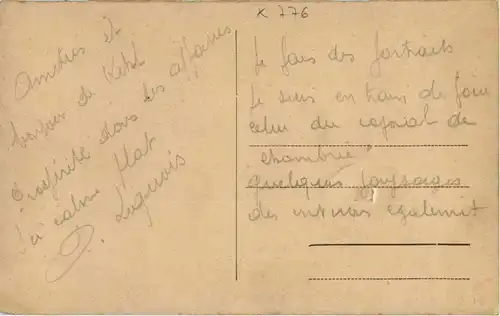 x 776
Amitiés et
bonjour de Kehl
Prospérité dans les affaires
ici calme plat
D. Luquois
Je fais des portraits
Je suis en train de faire
celui du caporal de
chambrée
quelques paysages
des intérieurs également